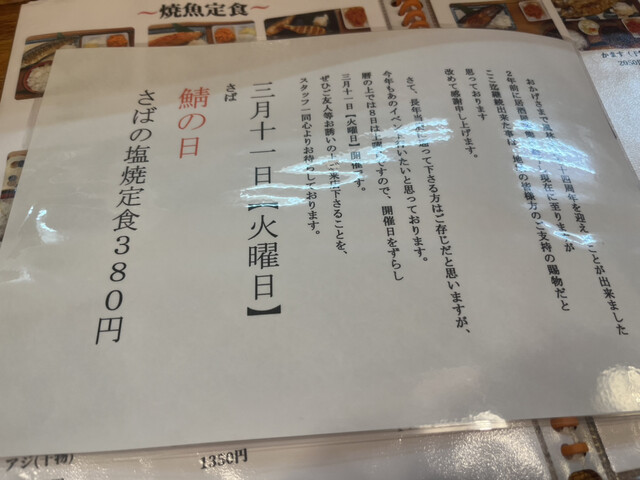 ~焼魚定食~
かます(
2050
おかげさまで
十四周年を迎え
ことが出来ました
2年前に居酒屋
現在に至りますが
地域の皆様方のご支持の賜物だと
思っております
改めて感謝申し上げます。
さて、長年当
って下さる方はご存じだと思いますが、
今年もあのイベントを
いたいと思っております。
暦の上では8日は土曜
ですので、開催日をずらし
三月十一日【火曜日】開催
す。
ぜひご友人等お誘いの
ご来店下さることを、
スタッフ一同心よりお待ちしております。
三月十一日【火曜日】
さば
鯖の日
さばの塩焼定食380円
アジ(干物)
1350円